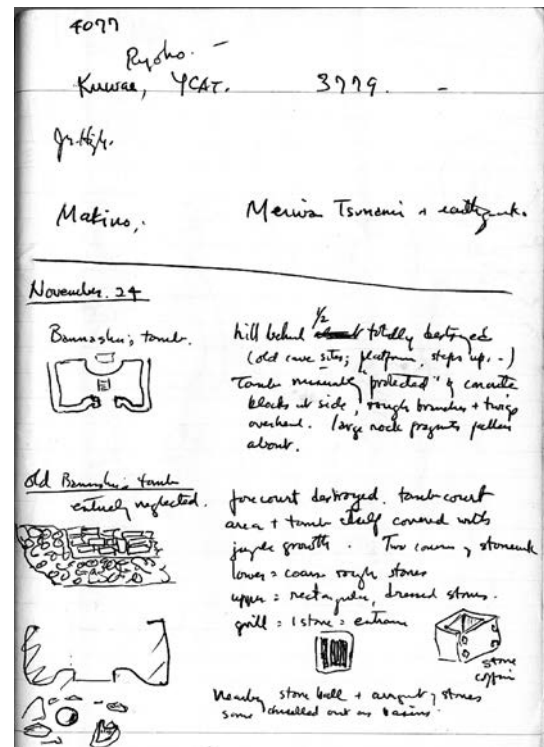 4077
Ryoho. -
Kuwae, YCAT. 3779. -
Jr. High.
Makino, Meiwa Tsunami + earthquake.
November. 24
tomb. hill behind 1/2 totally destroyed
(old cave sites, platform, steps up. -)
Tomb "protected" by concrete
blocks at side, rough branches + twigs
overhead. large rock fragments fallen
about.
old tomb
entirely neglected. forecourt destroyed. tomb court
area + tomb itself covered with
jungle growth. Two courses of stonework
lower = coarse rough stones
upper = rectangular, dressed stones.
grill = 1 stone = entrance
stone
coffin
Nearby stone ball + of stones
some chiselled out as basins.